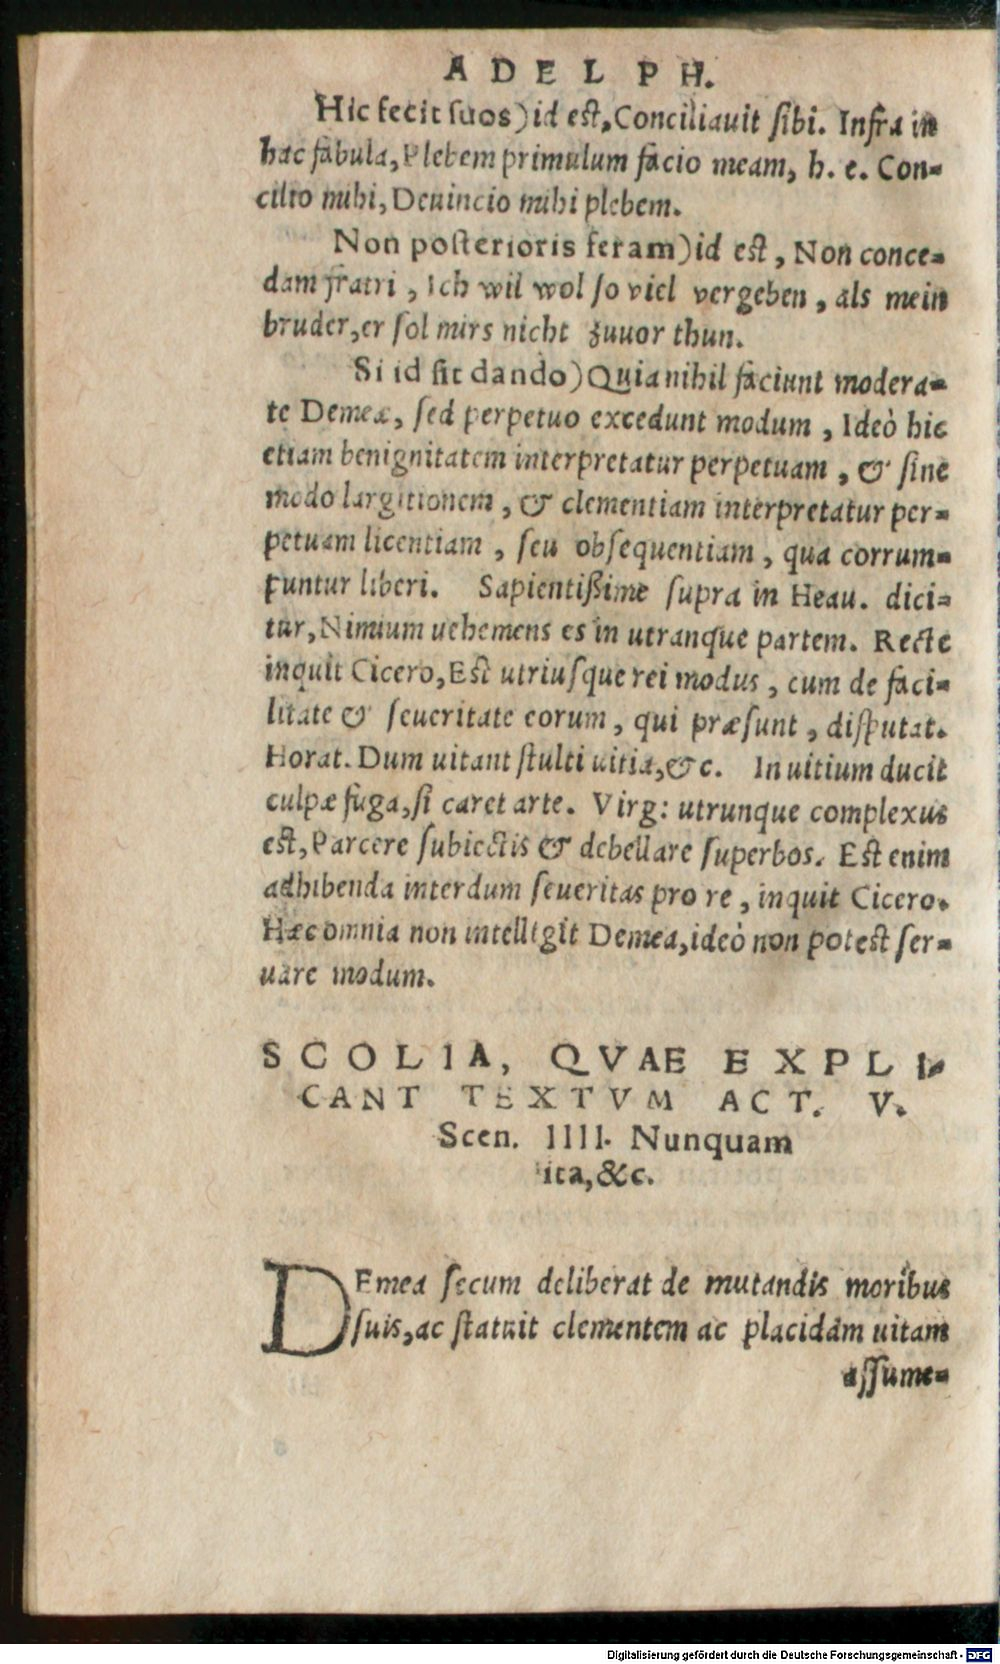 ADELPH.
Hic fecit suos) id est, Conciliauit sibi. Infra in
hac fabula, Plebem primulum facio meam, h. e. Con-
cilio mihi, Deuincio mihi plebem.
Non posterioris feram) id est, Non conce-
dam fratri, Ich wil wol so viel vergeben, als mein
bruder, er sol mirs nicht zuuor thun.
Si id sit dando) Quia nihil faciunt modera-
te Demeæ, sed perpetuo excedunt modum, Ideò hic
etiam benignitatem interpretatur perpetuam, & sine
modo largitionem, & clementiam interpretatur per-
petuam licentiam, seu obsequentiam, qua corrum-
puntur liberi. Sapientißime supra in Heau. dici-
tur, Nimium uehemens es in utranque partem. Recte
inquit Cicero, Est utriusque rei modus, cum de faci-
litate & seueritate eorum, qui præsunt, disputat.
Horat. Dum uitant stulti uitia, &c. In uitium ducit
culpæ fuga, si caret arte. Virg: utrunque complexus
est, Parcere subiectis & debellare superbos. Est enim
adhibenda interdum seueritas pro re, inquit Cicero.
Hæc omnia non intelligit Demea, ideò non potest ser-
uare modum.
SCOLIA, QVAE EXPLI-
CANT TEXTVM ACT. V.
Scen. IIII. Nunquam
ita, &c.
DEmea secum deliberat de mutandis moribus
suis, ac statuit clementem ac placidam uitam
assume-
Digitalisierung gefördert durch die Deutsche Forschungsgemeinschaft - DFG